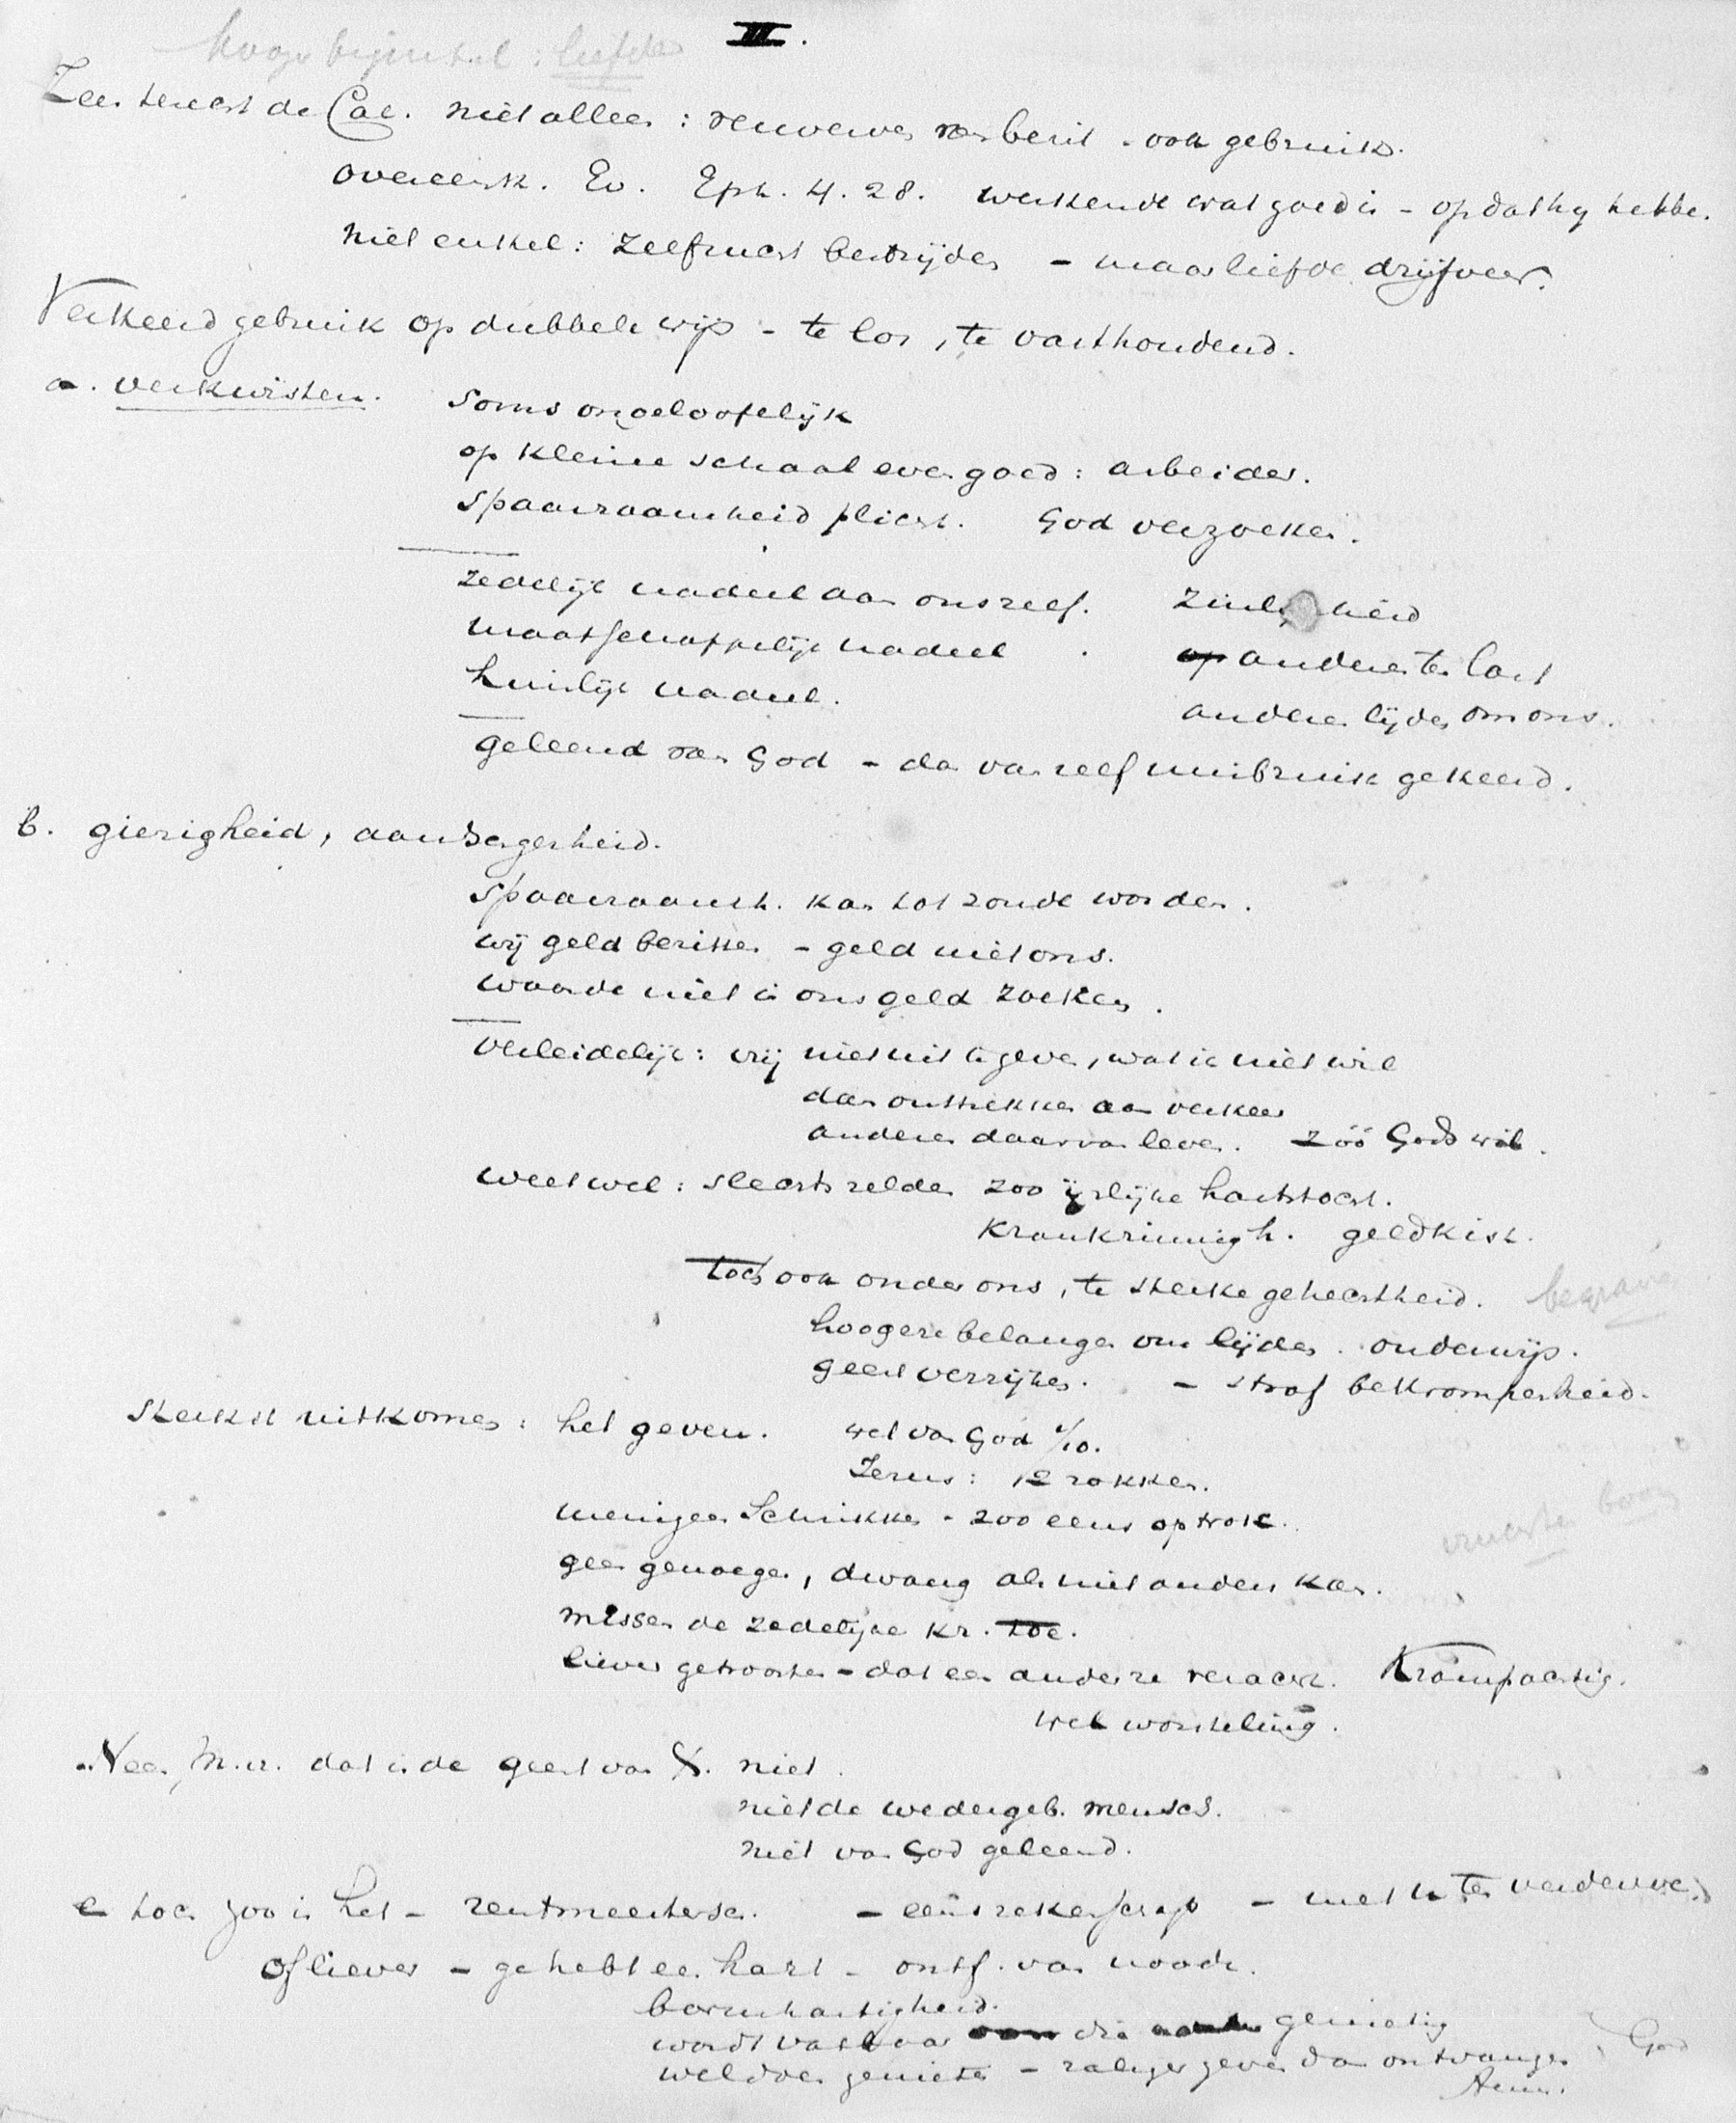 III.
hooger beginsel : liefde
Zeer terecht de Cat. niet alleen : verwerven van bezit - ook gebruik.
overeenk. Ev. Eph. 4.28. werkende wat goed is - opdat hij hebbe.
niet enkel : zelfzucht bestrijden - maar liefde drijfveer.
Verkeerd gebruik op dubbele wijs - te los, te vasthoudend.
a. verkwisten. Soms ongelooflijk
op kleine schaal even goed : arbeider.
Spaarzaamheid plicht. God verzoeken.
zedelijk nadeel aan onszelf. zinl heid
maatschappelijk nadeel . op anderen ten last
huislijk nadeel. anderen lijden om ons.
geleend van God - dan van zelf misbruik gekeerd.
b. gierigheid,
Spaarzaamh. kan tot zonde worden.
wij geld bezitten - geld niet ons.
waarde niet in ons geld zoeken.
Verleidelijk : vrij niet uit te geven, wat ik niet wil
dan onttrekken aan verkeer
anderen daarvan leven. zóó Gods wil.
Weet wel : slechts zelden zoo ijslijke hartstocht.
Krankzinnigh. geldkist.
toch ook onder ons, te sterke gehechtheid. begraven
hoogere belangen om lijden. onderwijs.
geest verrijken. - straf bekrompenheid.
Sterkst uitkomen : het geven. wet van God 1/10.
Jezus : 12 rokken.
menigeen schrikken - zoo eens optrok.
geen genoegen, dwang als niet anders kan.
vruchten boom
missen de zedelijke kr. toe.
liever getroosten - dat een ander ze veracht. Krampachtig.
wel worsteling.
Neen, M.H. dat is de geest van X. niet.
niet de wedergeb. mensch.
niet van God geleend.
en toch zoo is het - rentmeester - eens rekenschap - ten verderve
of liever - ge hebt een hart - ontf. van noode.
barmhartigheid.
wordt vatbaar voor die genieting
weldoen genieten - zaliger geven dan ontvangen. God
Amen.